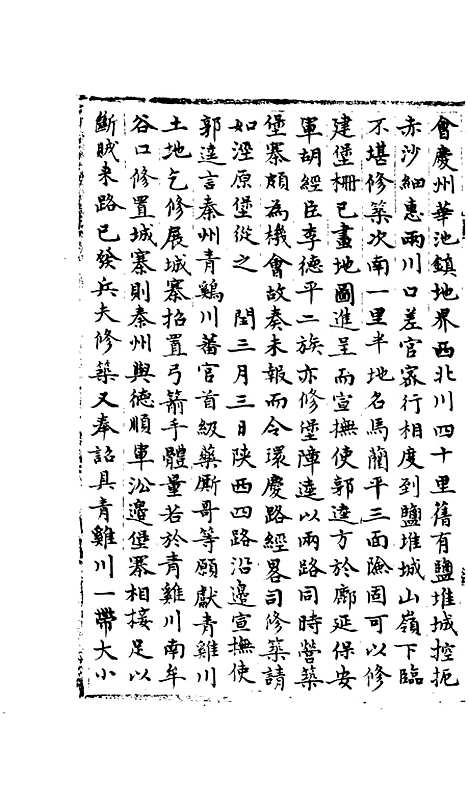 會慶州華池鎮地界西北川四十里舊有鹽堆城控扼
赤沙細惠兩川口差官密行相度到鹽堆城山嶺下臨
不堪修築次南一里半地名馬蘭平三面險固可以修
建堡柵已畫地圖進呈而宣撫使郭逵方於鄜延保安
軍胡經臣李德平二族亦修堡障逵以兩路同時營築
堡寨頗為機會故奏未報而令環慶路經畧司修築請
如涇原堡從之　閏三月三日陝西四路沿邊宣撫使
郭逵言秦州青鷄川蕃官首級藥厮哥等願獻青雞川
土地乞修展城寨招置弓箭手體量若於青雞川南牟
谷口修置城寨則秦州與德順軍沿邊堡寨相接足以
斷賊来路已發兵夫修築又奉詔具青雞川一帶大小